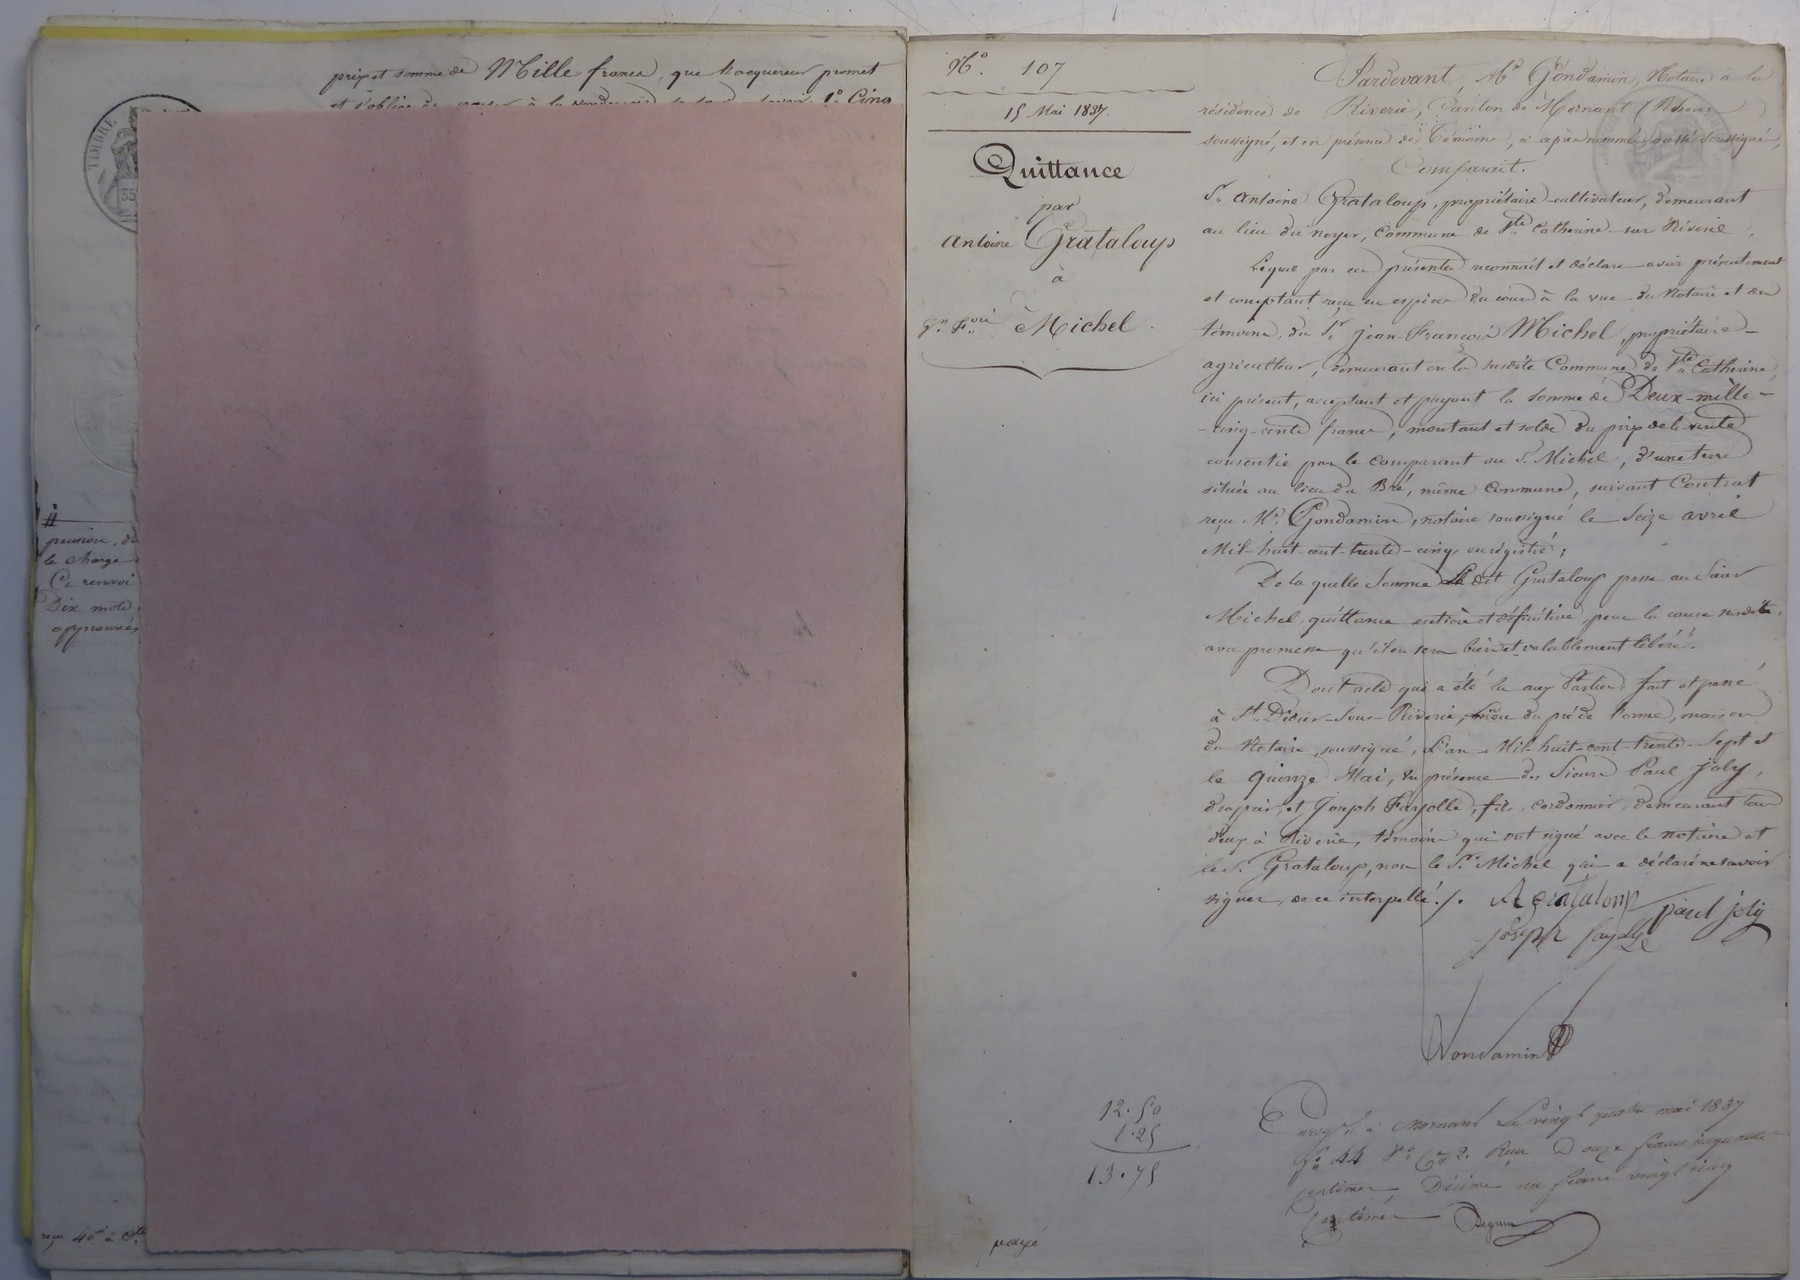 prix et somme de Mille francs, que l'acquereur promet
et s'oblige de payer à la venderesse 1° Cinq
TIMBRE
35
le charge
Ce renvoi
Dix mots
approuvés
N° 107
15 Mai 1837.
Quittance
par
Antoine Grataloup
à
Jn. Fcois Michel
Pardevant, Me Gondamin, Notaire à la
résidence de Riverie, Canton de Mornant (Rhône)
soussigné, et en présence des Témoins, ci après nommés aussi soussignés,
Comparait.
Sr. Antoine Grataloup, propriétaire-cultivateur, demeurant
au lieu du Noyer, Commune de Ste Catherine-sur Riverie.
Lequel par ces présentes reconnait et déclare avoir présentement
et comptant reçu en espèces du cours à la vue du Notaire et des
témoins, du Sr. Jean-François Michel, propriétaire-
agriculteur, demeurant en la susdite Commune de Ste Catherine,
ici présent, acceptant et payant la somme de Deux-mille-
-cinq-cents francs, montant et solde du prix de la vente
consentie par le comparant au S. Michel, d'une terre
située au lieu du Bré, même Commune, suivant Contrat
reçu Me. Gondamin, notaire soussigné le Seize avril
Mil-huit-cent-trente-cinq enrégistré;
De la quelle Somme le dit Grataloup passe au Sieur
Michel, quittance entière et définitive, pour la cause susdite,
avec promesse qu'il en sera bien et valablement libéré.
Dont acte qui a été lu aux Parties fait et passé
à St. Didier-Sous-Riverie, lieu du pré de l'orme, maison
du Notaire soussigné, L'an Mil-huit-cent-trente-Sept et
le Quinze Mai, en présence des Sieurs Paul Joly,
drapier, et Joseph Fayolle, fils, cordonnier, demeurant tous
deux à Riverie, témoins qui ont signé avec le notaire et
le S. Grataloup, non le Sr. Michel qui a déclaré ne savoir
signer, de ce interpellé./.
A Grataloup paul joly
joseph fayolle
Gondamin
12.50
1.25
13.75
Enregé à Mornant Le vingt quatre mai 1837
fo 44 Vo Ce 2. Reçu Douze francs cinquante
centimes, Décime un franc vingt cinq
Centimes
payé